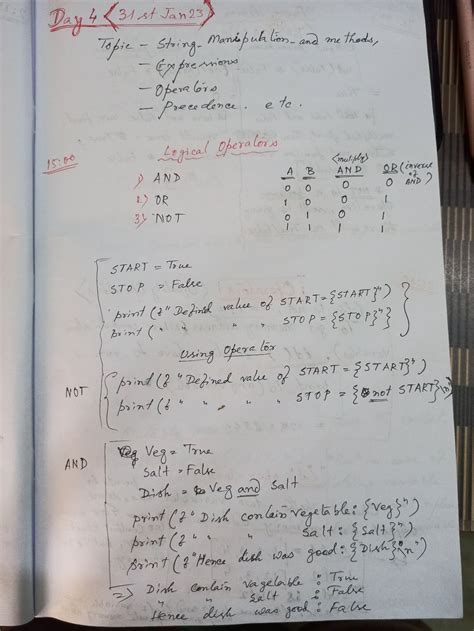 Day 4 (31st Jan 23)
Topic - String-Manipulation-and methods,
- Expressions
- Operators
- Precedence. etc.
15:00
Logical Operators
1) AND
2) OR
3) NOT
<multiply>
A B AND OR (inverse of AND)
0 0 0 0
1 0 0 1
0 1 0 1
1 1 1 1
START = True
STOP = False
print (f" Defined value of START={START}")
print (" " " " STOP = {STOP}")
Using Operator
NOT
print (f" Defined value of START = {START}")
print (f " " " " STOP = {not START}\n")
AND
Veg Veg = True
Salt = False
Dish = Veg and Salt
print (f" Dish contain vegetable: {Veg}")
print (f " " " Salt: {Salt}")
print (f"Hence dish was good: {Dish}\n")
=> Dish contain vagetable : True
" " Salt : False
Hence dish was good : False